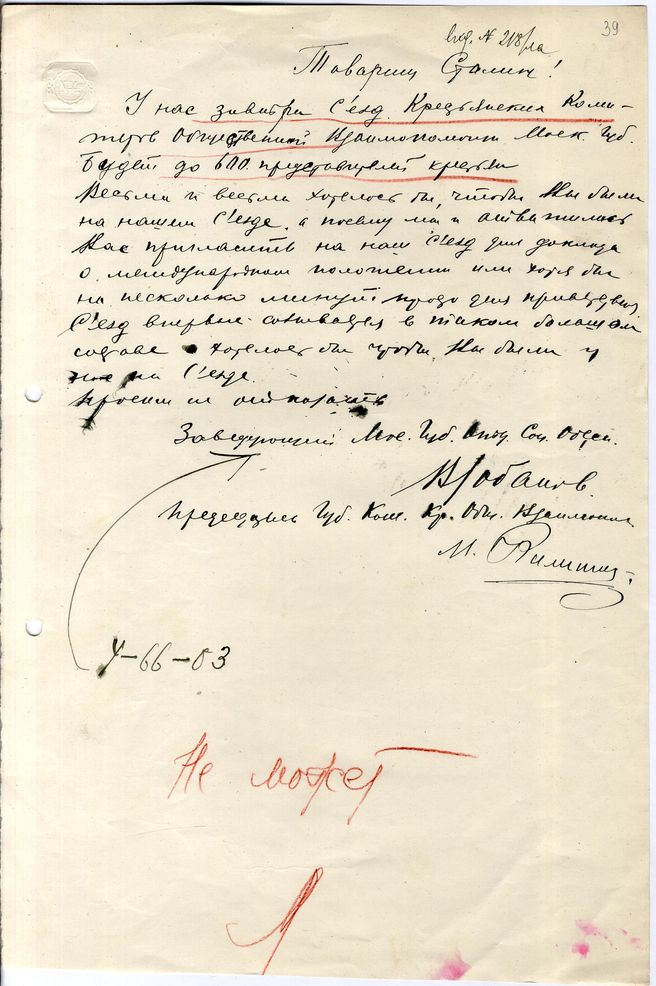 39
вход. № 218/па
Товарищ Сталин!
У нас завтра С'езд Крестьянских Коми-
тетов Общественной Взаимопомощи Моск. Губ.
Будет до 600 представителей крестьян
Весьма и весьма хотелось бы, чтобы Вы были
на нашем С'езде, а поэтому мы и отважились
Вас пригласить на наш С'езд для доклада
о международном положении или хотя бы
на несколько минут просто для приветствия
С'езд впервые созывается в таком большом
составе и хотелось бы чтобы Вы были у
нас на С'езде.
Просим не отказать
Заведующий Мос. Губ. Отд. Соц. Обесп.
Председатель Губ. Ком. Кр. Общ. Взаимопом
М.
4-66-03
Не может